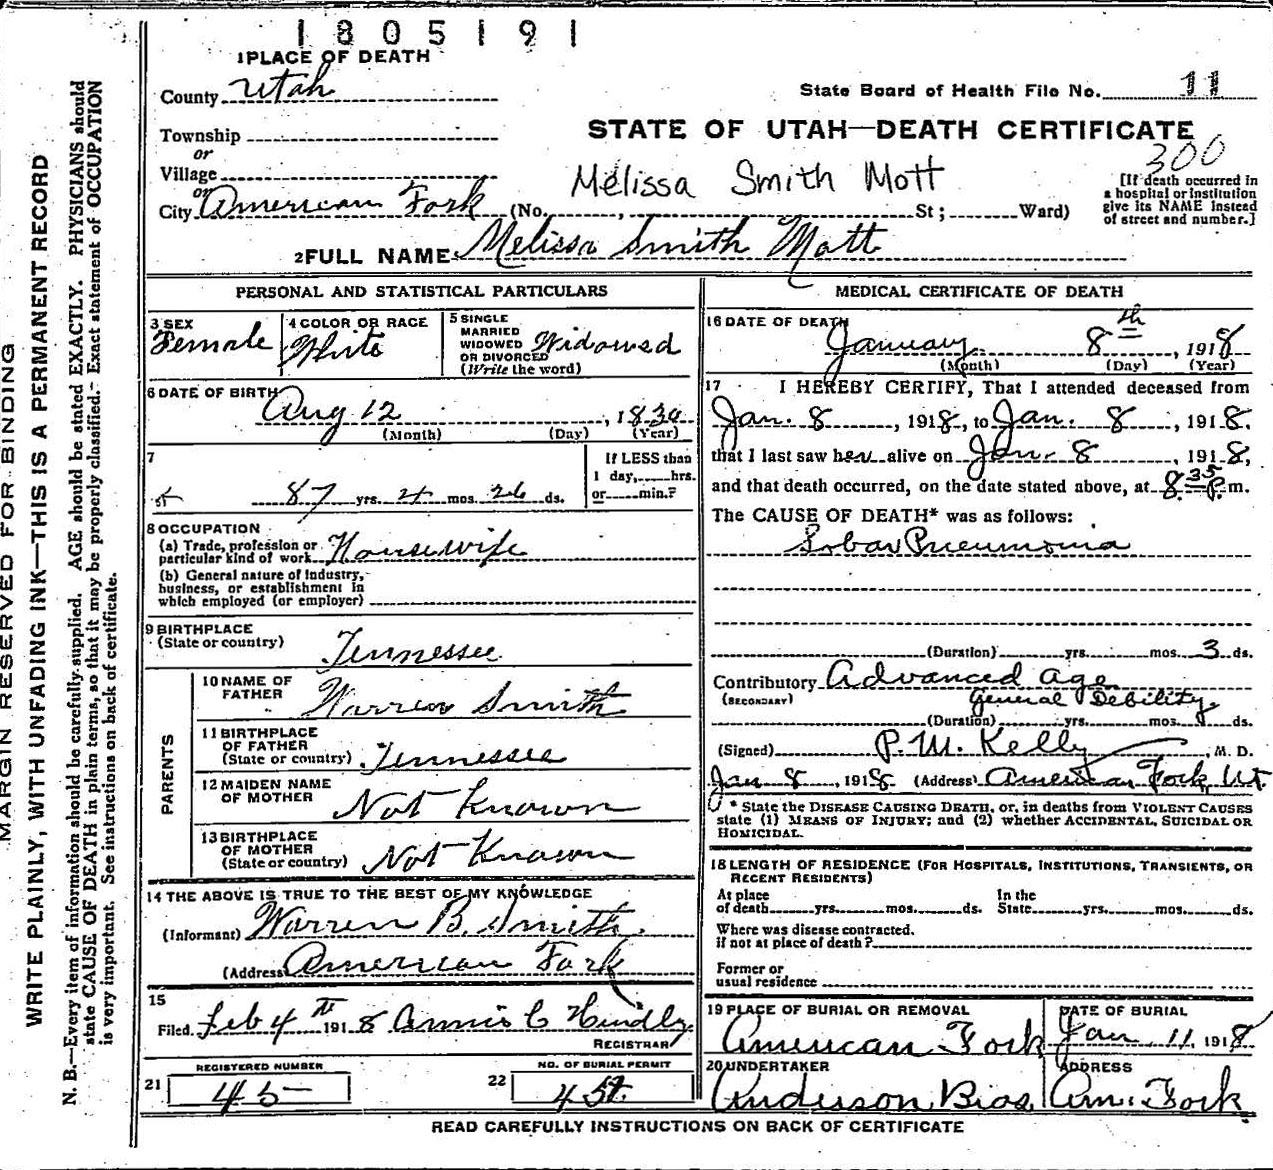 1805191
1 PLACE OF DEATH
County Utah
State Board of Health File No. 11
Township
or
Village
or
City American Fork
STATE OF UTAH—DEATH CERTIFICATE
300
Melissa Smith Mott
(No. , St; Ward)
[If death occurred in a hospital or institution give its NAME instead of street and number.]
2 FULL NAME Melissa Smith Mott
PERSONAL AND STATISTICAL PARTICULARS
3 SEX
Female
4 COLOR OR RACE
White
5 SINGLE
MARRIED
WIDOWED
OR DIVORCED
(Write the word)
Widowed
6 DATE OF BIRTH
Aug 12, 1830
(Month) (Day) (Year)
7
87 yrs. 4 mos. 26 ds.
If LESS than
1 day, hrs.
or min.?
8 OCCUPATION
(a) Trade, profession or
particular kind of work Housewife
(b) General nature of industry,
business, or establishment in
which employed (or employer)
9 BIRTHPLACE
(State or country)
Tennessee
PARENTS
10 NAME OF
FATHER
Warren Smith
11 BIRTHPLACE
OF FATHER
(State or country) Tennessee
12 MAIDEN NAME
OF MOTHER
Not Known
13 BIRTHPLACE
OF MOTHER
(State or country) Not Known
14 THE ABOVE IS TRUE TO THE BEST OF MY KNOWLEDGE
(Informant) Warren B. Smith
(Address American Fork
15
Filed. Feb 4th 1918 Annie C Hindly
REGISTRAR
REGISTERED NUMBER
21 45
NO. OF BURIAL PERMIT
22
MEDICAL CERTIFICATE OF DEATH
16 DATE OF DEATH
January 8th, 1918
(Month) (Day) (Year)
17 I HEREBY CERTIFY, That I attended deceased from
Jan. 8, 1918, to Jan. 8, 1918.
that I last saw her alive on Jan. 8, 1918,
and that death occurred, on the date stated above, at 8:35 P. m.
The CAUSE OF DEATH* was as follows:
Lobar Pneumonia
(Duration) yrs. mos. 3 ds.
Contributory Advanced Age
(SECONDARY) General Debility
(Duration) yrs. mos. ds.
(Signed) P. M. Kelly M. D.
Jan 8, 1918 (Address) American Fork, Ut
* State the DISEASE CAUSING DEATH, or, in deaths from VIOLENT CAUSES
state (1) MEANS OF INJURY; and (2) whether ACCIDENTAL, SUICIDAL OR
HOMICIDAL.
18 LENGTH OF RESIDENCE (FOR HOSPITALS, INSTITUTIONS, TRANSIENTS, OR
RECENT RESIDENTS)
At place In the
of death yrs. mos. ds. State yrs. mos. ds.
Where was disease contracted.
if not at place of death?
Former or
usual residence
19 PLACE OF BURIAL OR REMOVAL
American Fork
DATE OF BURIAL
Jan. 11, 1918
20 UNDERTAKER
Anderson Bros.
ADDRESS
Am. Fork
READ CAREFULLY INSTRUCTIONS ON BACK OF CERTIFICATE
MARGIN RESERVED FOR BINDING
WRITE PLAINLY, WITH UNFADING INK—THIS IS A PERMANENT RECORD
N. B.—Every item of information should be carefully supplied. AGE should be stated EXACTLY. PHYSICIANS should
state CAUSE OF DEATH in plain terms, so that it may be properly classified. Exact statement of OCCUPATION
is very important. See instructions on back of certificate.